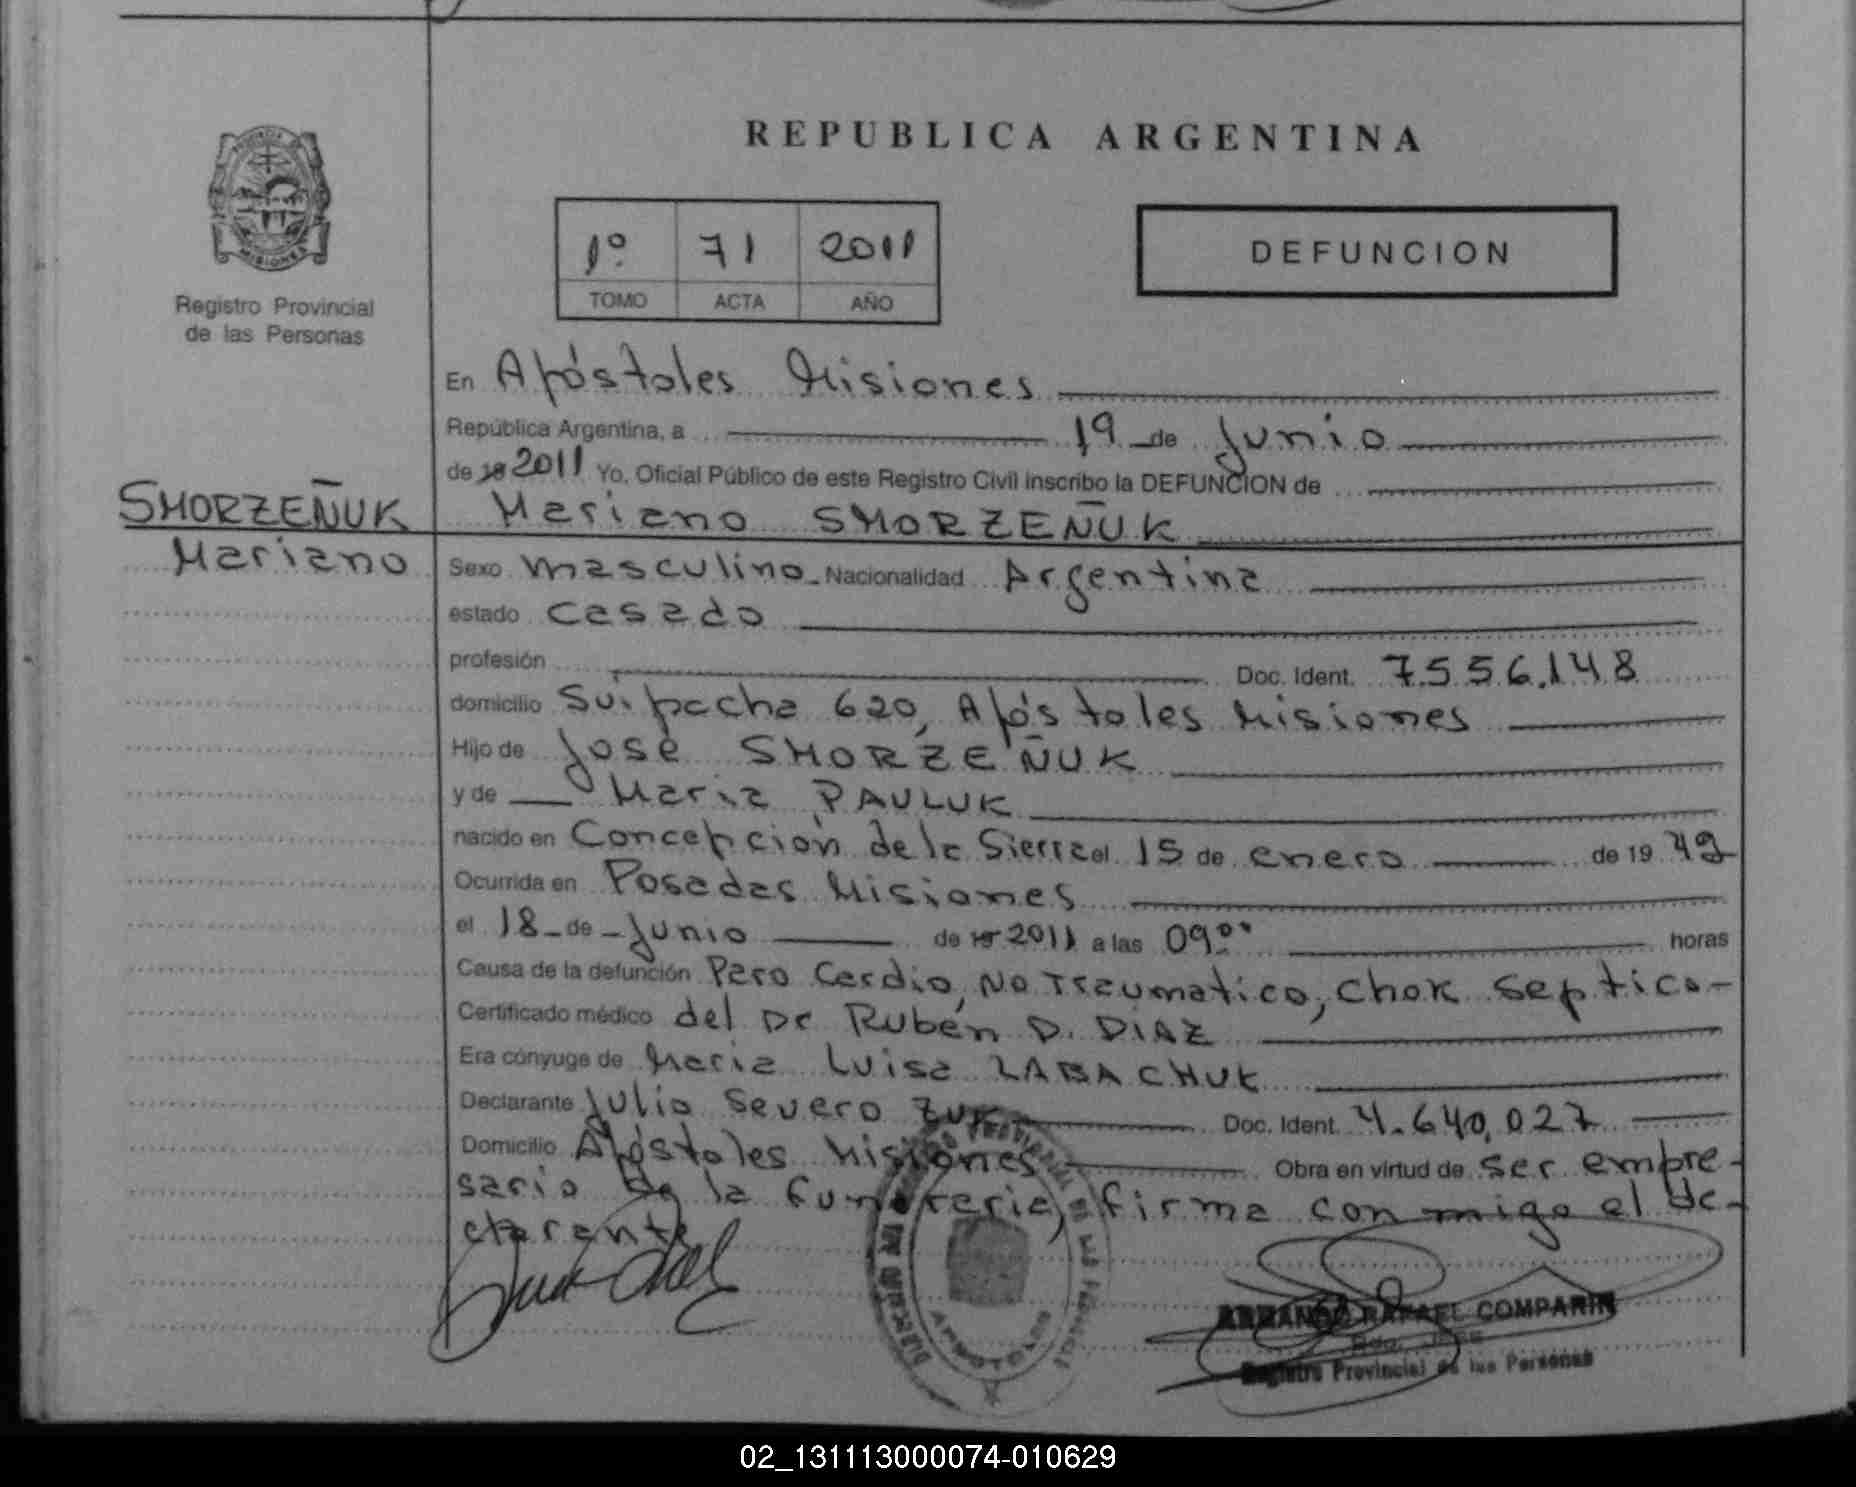 REPUBLICA ARGENTINA
1º 71 2011
TOMO ACTA AÑO
DEFUNCION
MISIONES
Registro Provincial
de las Personas
En Apóstoles Misiones
República Argentina, a 19 de Junio
de 19 2011 Yo, Oficial Público de este Registro Civil inscribo la DEFUNCION de
SMORZEÑUK
Mariano
Mariano SMORZEÑUK
Sexo masculino Nacionalidad Argentina
estado casado
profesión Doc. Ident. 7.556.148
domicilio Suipacha 620, Apóstoles Misiones
Hijo de José SMORZEÑUK
y de María PAULUK
nacido en Concepción de la Sierra el 15 de enero de 19 49
Ocurrida en Posadas Misiones
el 18 de Junio de 19 2011 a las 09:00 horas
Causa de la defunción Paro Cardio, No Traumatico, Chok Septico-
Certificado médico del Dr Rubén D. DIAZ
Era cónyuge de María Luisa LABACHUK
Declarante Julio Severo ZUK Doc. Ident. 4.640.027
Domicilio Apóstoles Misiones Obra en virtud de ser empre-
sario de la funeraria, firma conmigo el de-
clarante
APOSTOLES
ARMANDO RAFAEL COMPARIN
Registro Provincial de las Personas
02_131113000074-010629